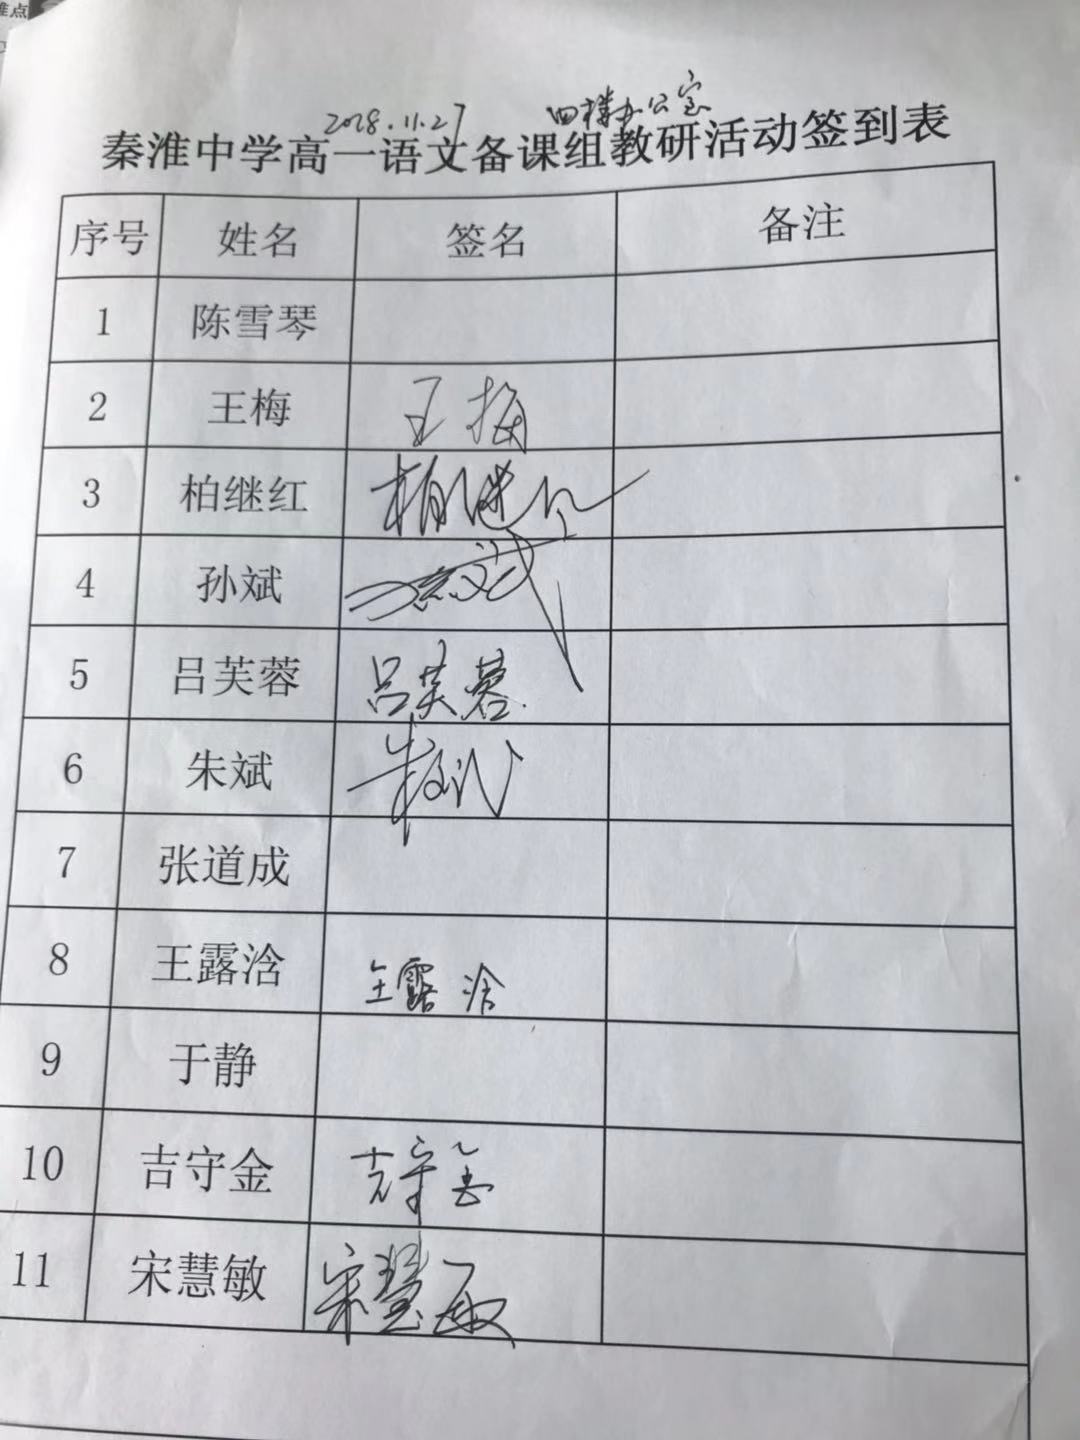 2018.11.27 四楼办公室
秦淮中学高一语文备课组教研活动签到表
序号 姓名 签名 备注
1 陈雪琴
2 王梅 王梅
3 柏继红 柏继红
4 孙斌 孙斌
5 吕芙蓉 吕芙蓉
6 朱斌 朱斌
7 张道成
8 王露浛 王露浛
9 于静
10 吉守金 吉守金
11 宋慧敏 宋慧敏